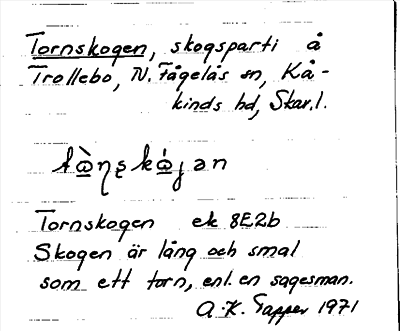 Tornskogen, skogsparti å
Trollebo, N. Fågelås sn, Kå-
kinds hd, Skar. l.
Tornskogen ek 8E2b
Skogen är lång och smal
som ett torn, enl. en sagesman.
A.-K. Tapper 1971